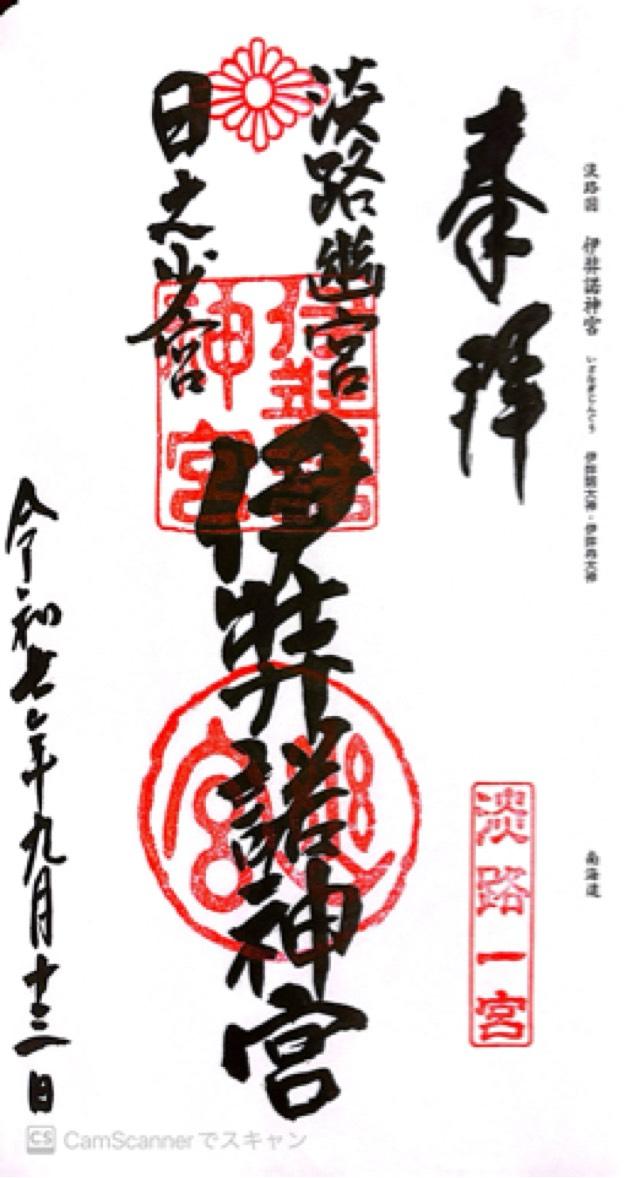 淡路國 伊弉諾神宮 いざなぎじんぐう 伊弉諾大神・伊弉冉大神
南海道
奉拝
淡路一宮
淡路幽宮
日之少宮
伊弉諾神宮
伊弉諾神宮
令和七年九月十三日
CS CamScannerでスキャン